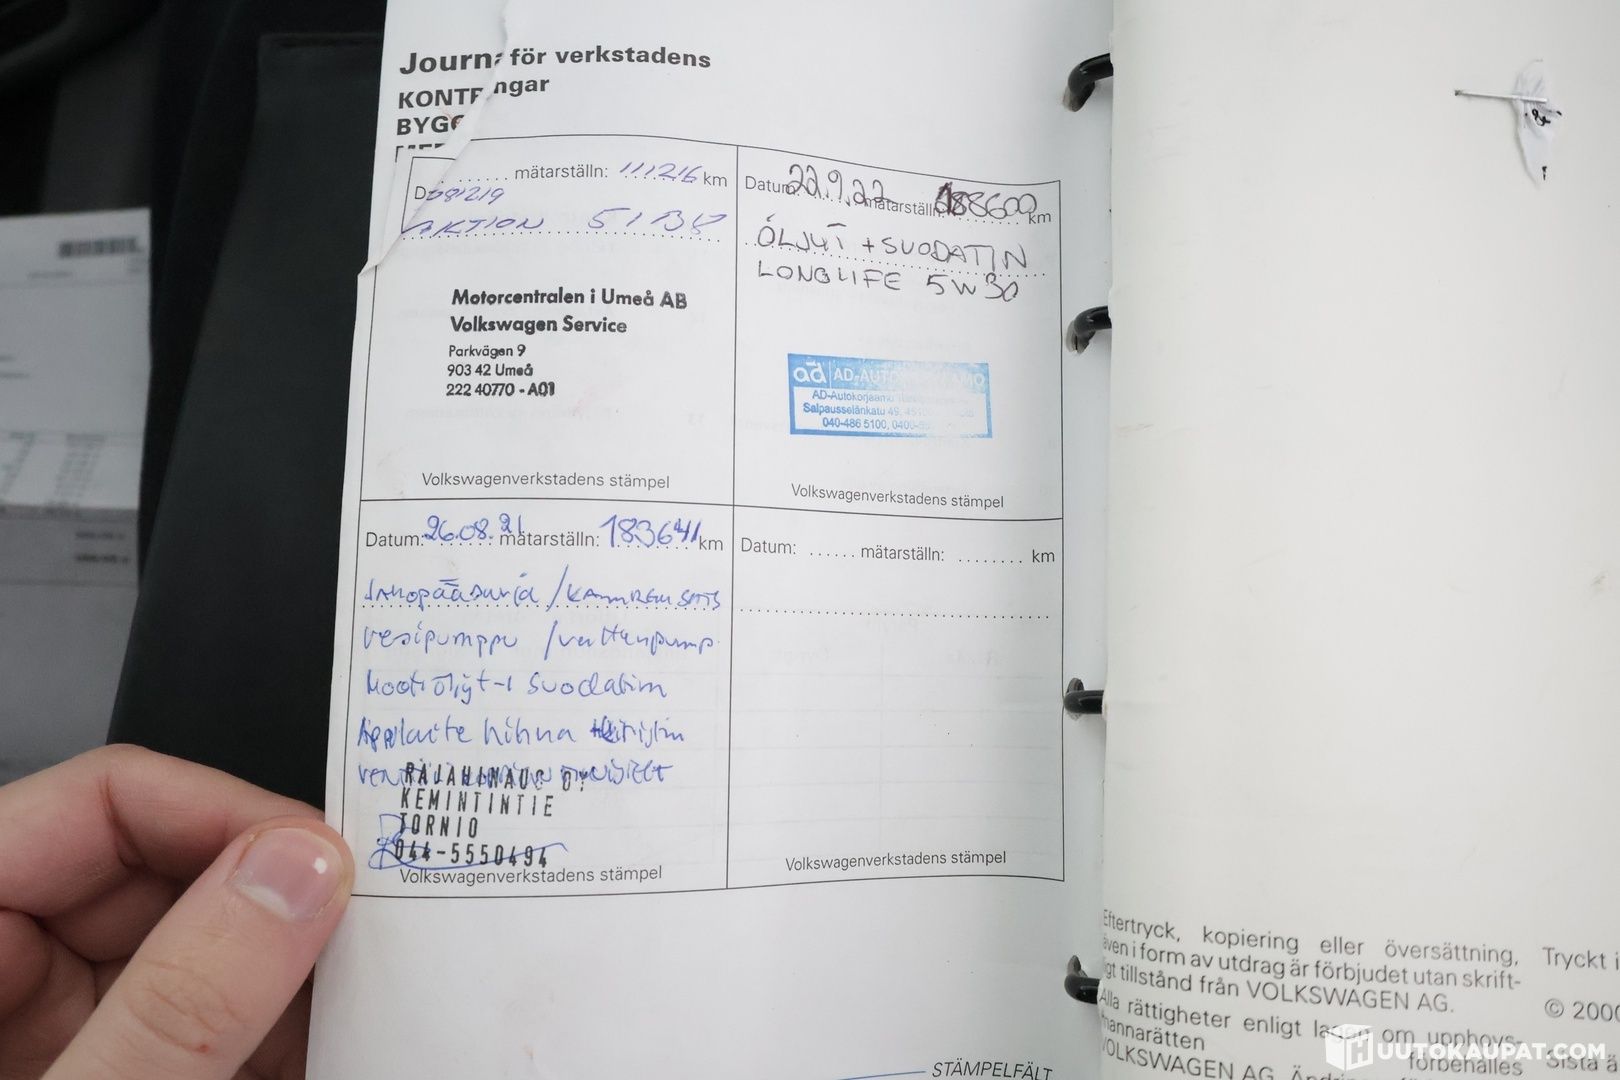 Journ för verkstadens
KONTR ngar
BYGG
D mätarställn: 111216 km
081219
AKTION 51B8
Motorcentralen i Umeå AB
Volkswagen Service
Parkvägen 9
903 42 Umeå
222 40770 - A01
Volkswagenverkstadens stämpel
Datum: 22.9.22 mätarställn: 188600 km
ÖLJYT + SUODATIN
LONGLIFE 5W30
ad AD-AUTO
AD-Autokorjaamo
Salpausselänkatu 49,
040-486 5100, 0400-
Volkswagenverkstadens stämpel
Datum: 26.08.21 mätarställn: 183641 km
Jakopääsarja / KAMREMSATS
vesipumppu / vattenpump
Moottoriöljyt + suodatin
Apulaite hihna
RAJAHINAUS OY
KEMINTINTIE
TORNIO
044-5550494
Volkswagenverkstadens stämpel
Datum: ...... mätarställn: ........ km
Volkswagenverkstadens stämpel
STÄMPELFÄLT
Eftertryck, kopiering eller översättning,
även i form av utdrag är förbjudet utan skrift-
igt tillstånd från VOLKSWAGEN AG.
Alla rättigheter enligt lagen om upphovs-
mannarätten förbehålles
VOLKSWAGEN AG.
Tryckt i
© 2000
Sista
HUUTOKAUPAT.COM